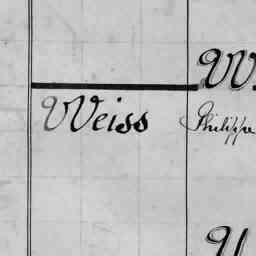 W
Weiss
Philippe